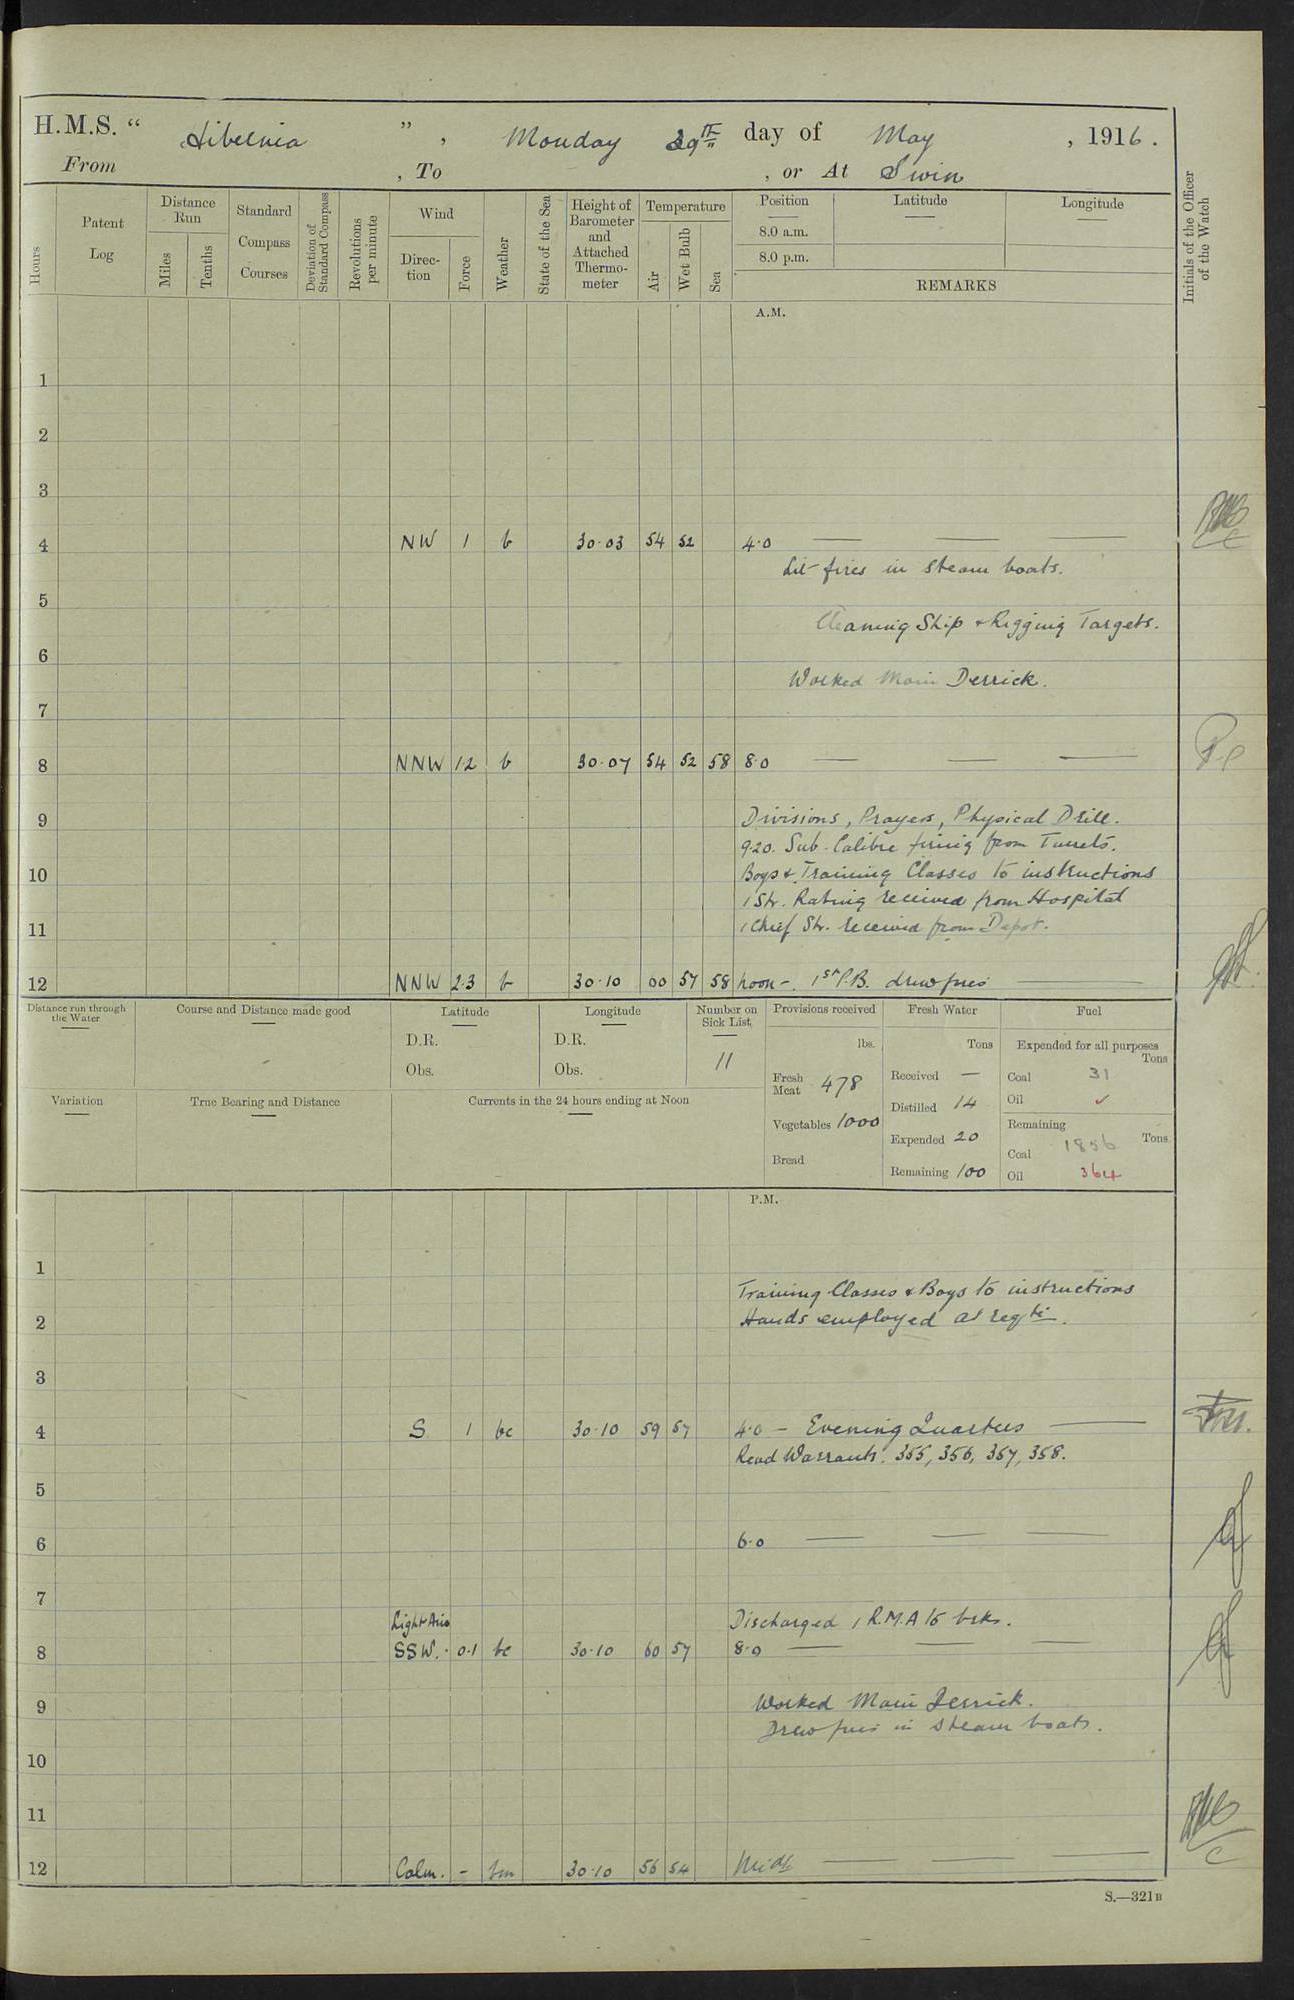 H.M.S. " Hibernia ", Monday 29th day of May, 1916.
From , To , or At Swin
Hours
Patent Log
Distance Run
Miles
Tenths
Standard Compass Courses
Deviation of Standard Compass
Revolutions per minute
Wind
Direction
Force
Weather
State of the Sea
Height of Barometer and Attached Thermometer
Temperature
Air
Wet Bulb
Sea
Position
8.0 a.m.
8.0 p.m.
Latitude
Longitude
REMARKS
Initials of the Officer of the Watch
A.M.
1
2
3
4 NW 1 b 30.03 54 52 4.0
Lit fires in steam boats.
5
Cleaning Ship & Rigging Targets.
6
Worked Main Derrick.
7
8 NNW 1.2 b 30.07 54 52 58 8.0
9 Divisions, Prayers, Physical Drill.
9.20. Sub-Calibre firing from Turrets.
10 Boys & Training Classes to instructions
1 Str. Rating received from Hospital
11 1 Chief Str. received from Depot.
12 NNW 2.3 b 30.10 00 57 58 Noon -. 1st P.B. drew fires
Distance run through the Water
Course and Distance made good
Latitude
D.R.
Obs.
Longitude
D.R.
Obs.
Number on Sick List
11
Provisions received
lbs.
Fresh Meat 478
Vegetables 1000
Bread
Fresh Water
Tons
Received —
Distilled 14
Expended 20
Remaining 100
Fuel
Expended for all purposes
Tons
Coal 31
Oil ✓
Remaining
Tons
Coal 1856
Oil 364
Variation
True Bearing and Distance
Currents in the 24 hours ending at Noon
P.M.
1
Training Classes & Boys to instructions
2 Hands employed as reqte.
3
4 S 1 bc 30.10 59 57 4.0 - Evening Quarters
Read Warrants. 355, 356, 357, 358.
5
6 6.0
7
Light Airs Discharged 1 R.M.A to bks.
8 SSW. 0.1 bc 30.10 60 57 8.0
9 Worked Main Derrick.
Drew fires in steam boats.
10
11
12 Calm. - bm 30.10 56 54 Midt
S.—321B